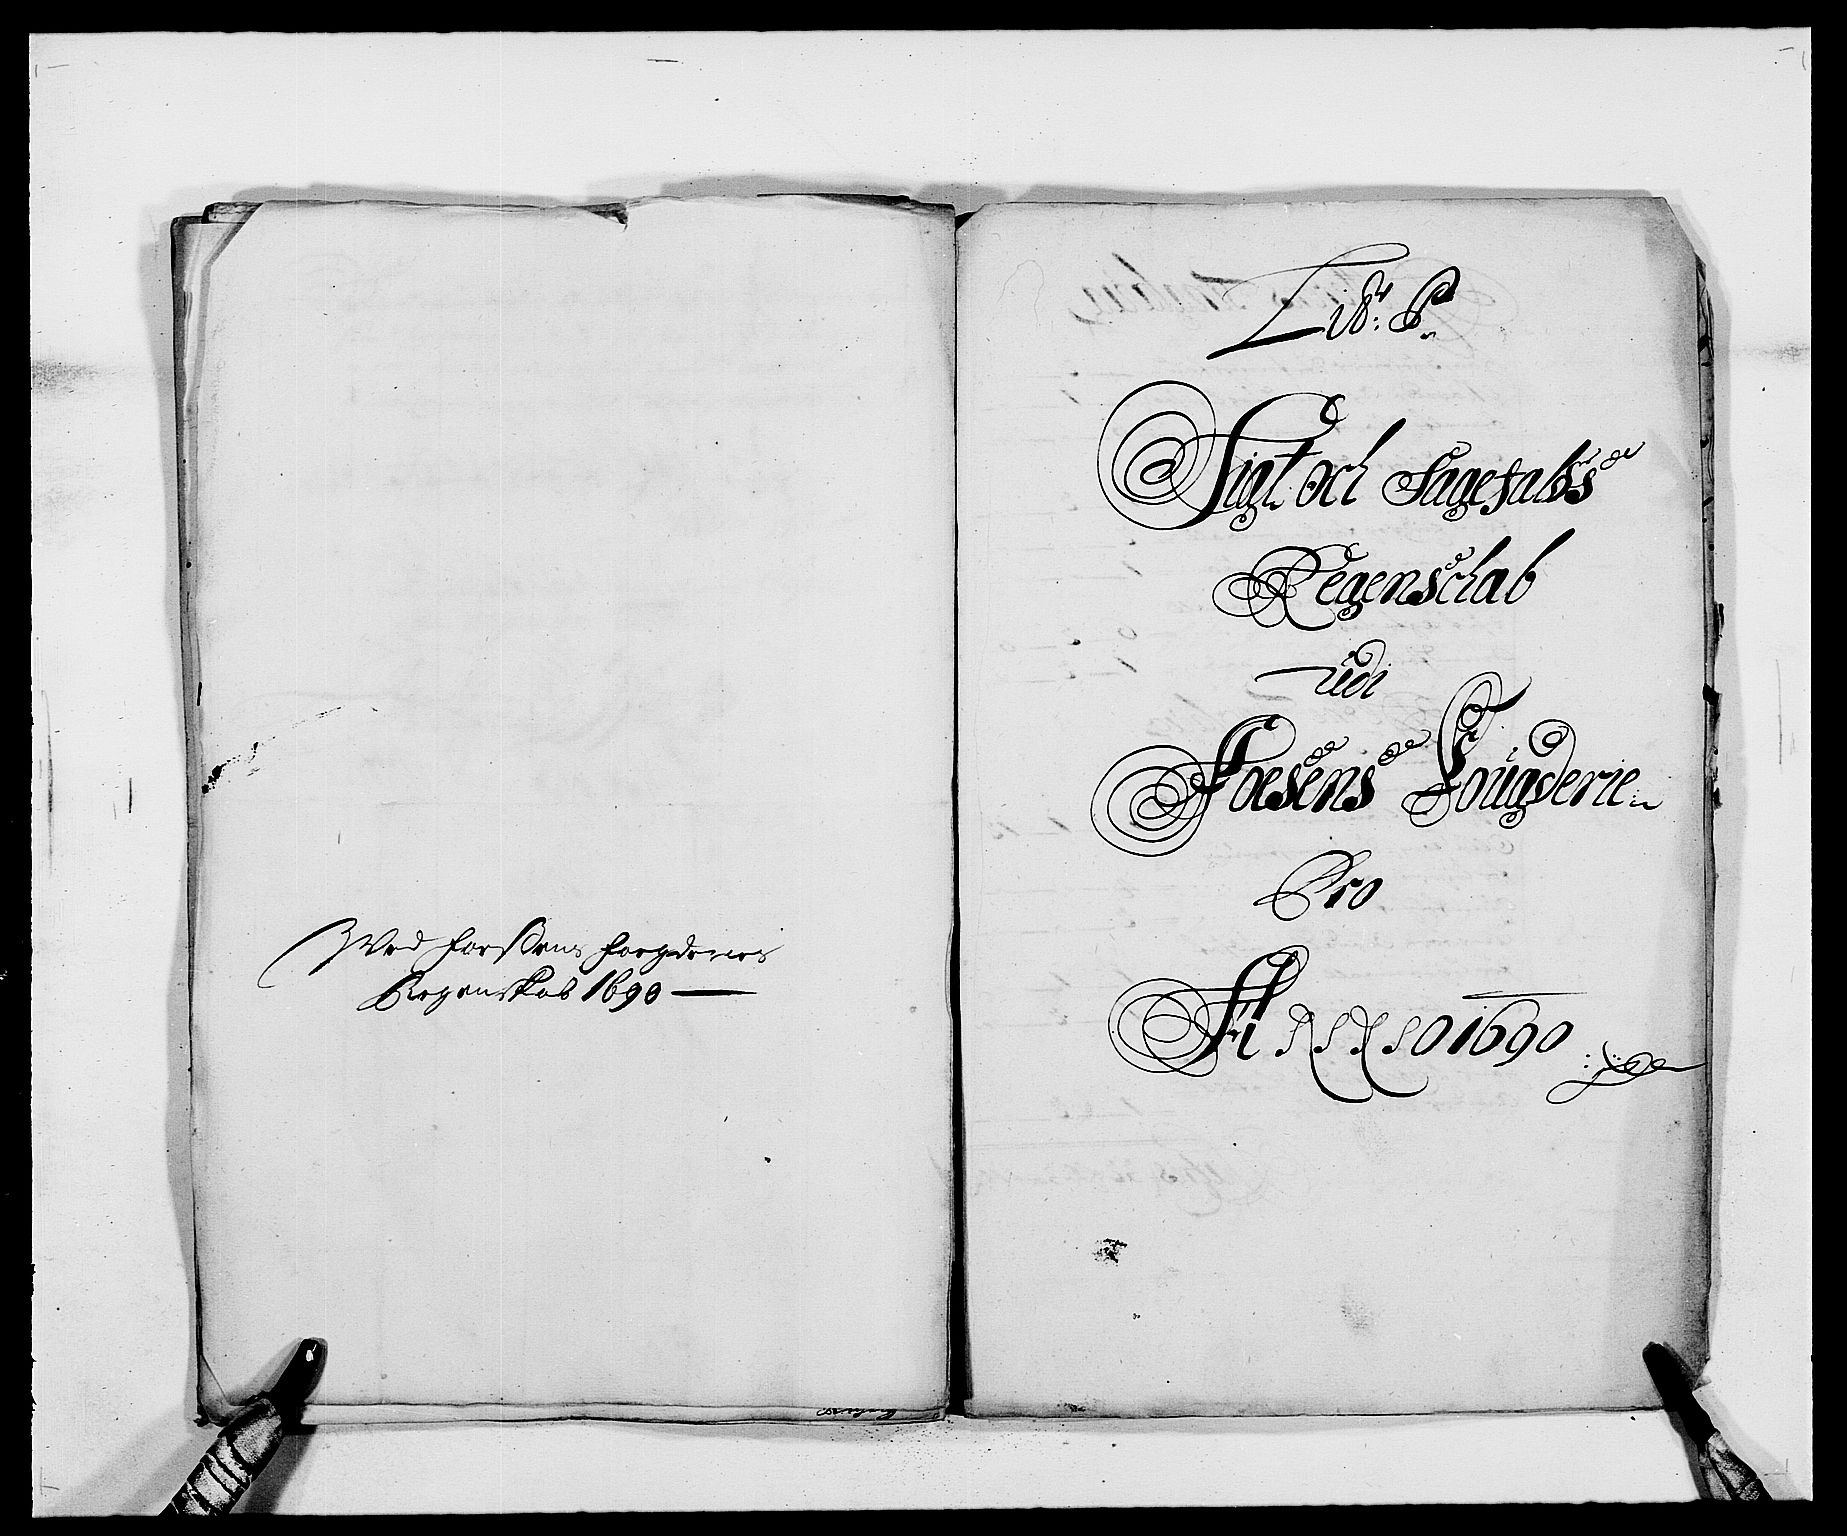 Wed Foessens Fogderies
Regenskab 1690
Litr: P.
Sigt och Sagefalds
Regenschab
udi
Foesens Fougderie
Pro
ANNO 1690